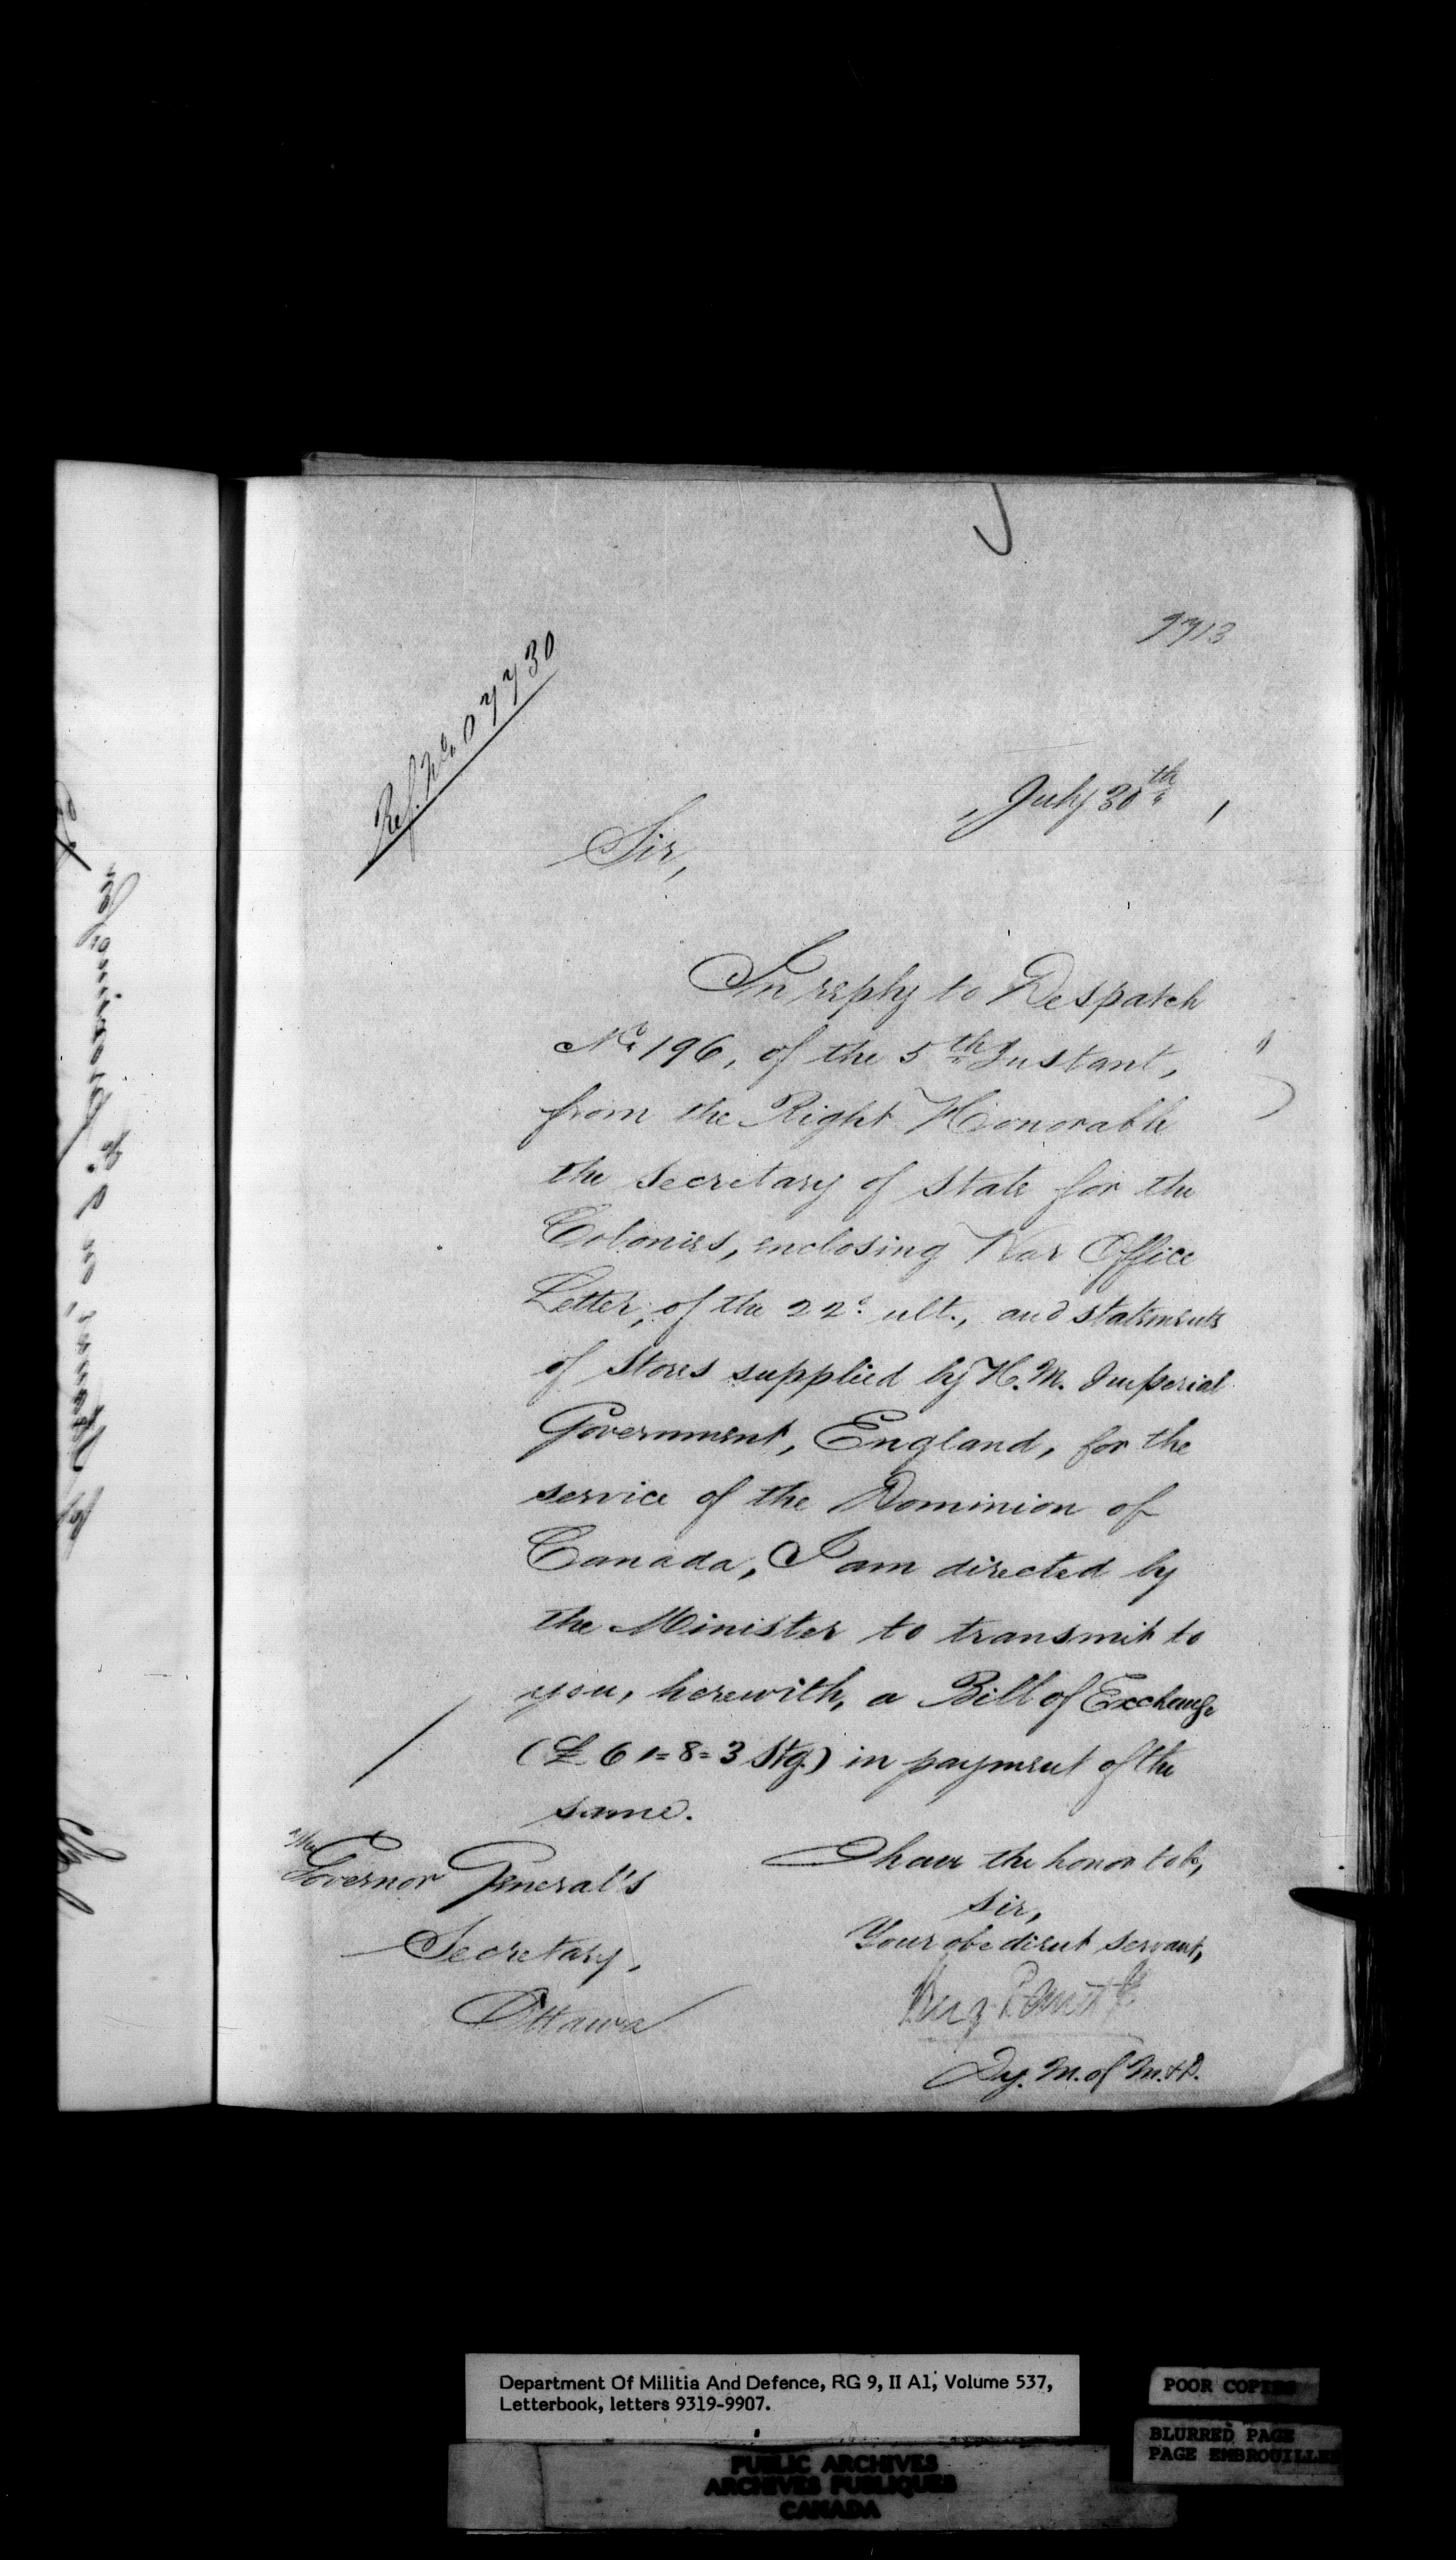 9713
Ref. No. 07730
July 30th,
Sir,
In reply to Despatch
No. 196, of the 5th Instant,
from the Right Honorable
the Secretary of State for the
Colonies, enclosing War Office
Letter, of the 22d ult., and statements
of Stores supplied by H. M. Imperial
Government, England, for the
service of the Dominion of
Canada, I am directed by
the Minister to transmit to
you, herewith, a Bill of Exchange
(£61=8=3 Stg.) in payment of the
same.
I have the honor to be,
Sir,
Your obedient servant,
Dy. M. of M. & D.
Governor General's
Secretary,
Ottawa
Department Of Militia And Defence, RG 9, II A1, Volume 537,
Letterbook, letters 9319-9907.
POOR COPIES
BLURRED PAGE
PAGE EMBROUILLEE
PUBLIC ARCHIVES
ARCHIVES PUBLIQUES
CANADA